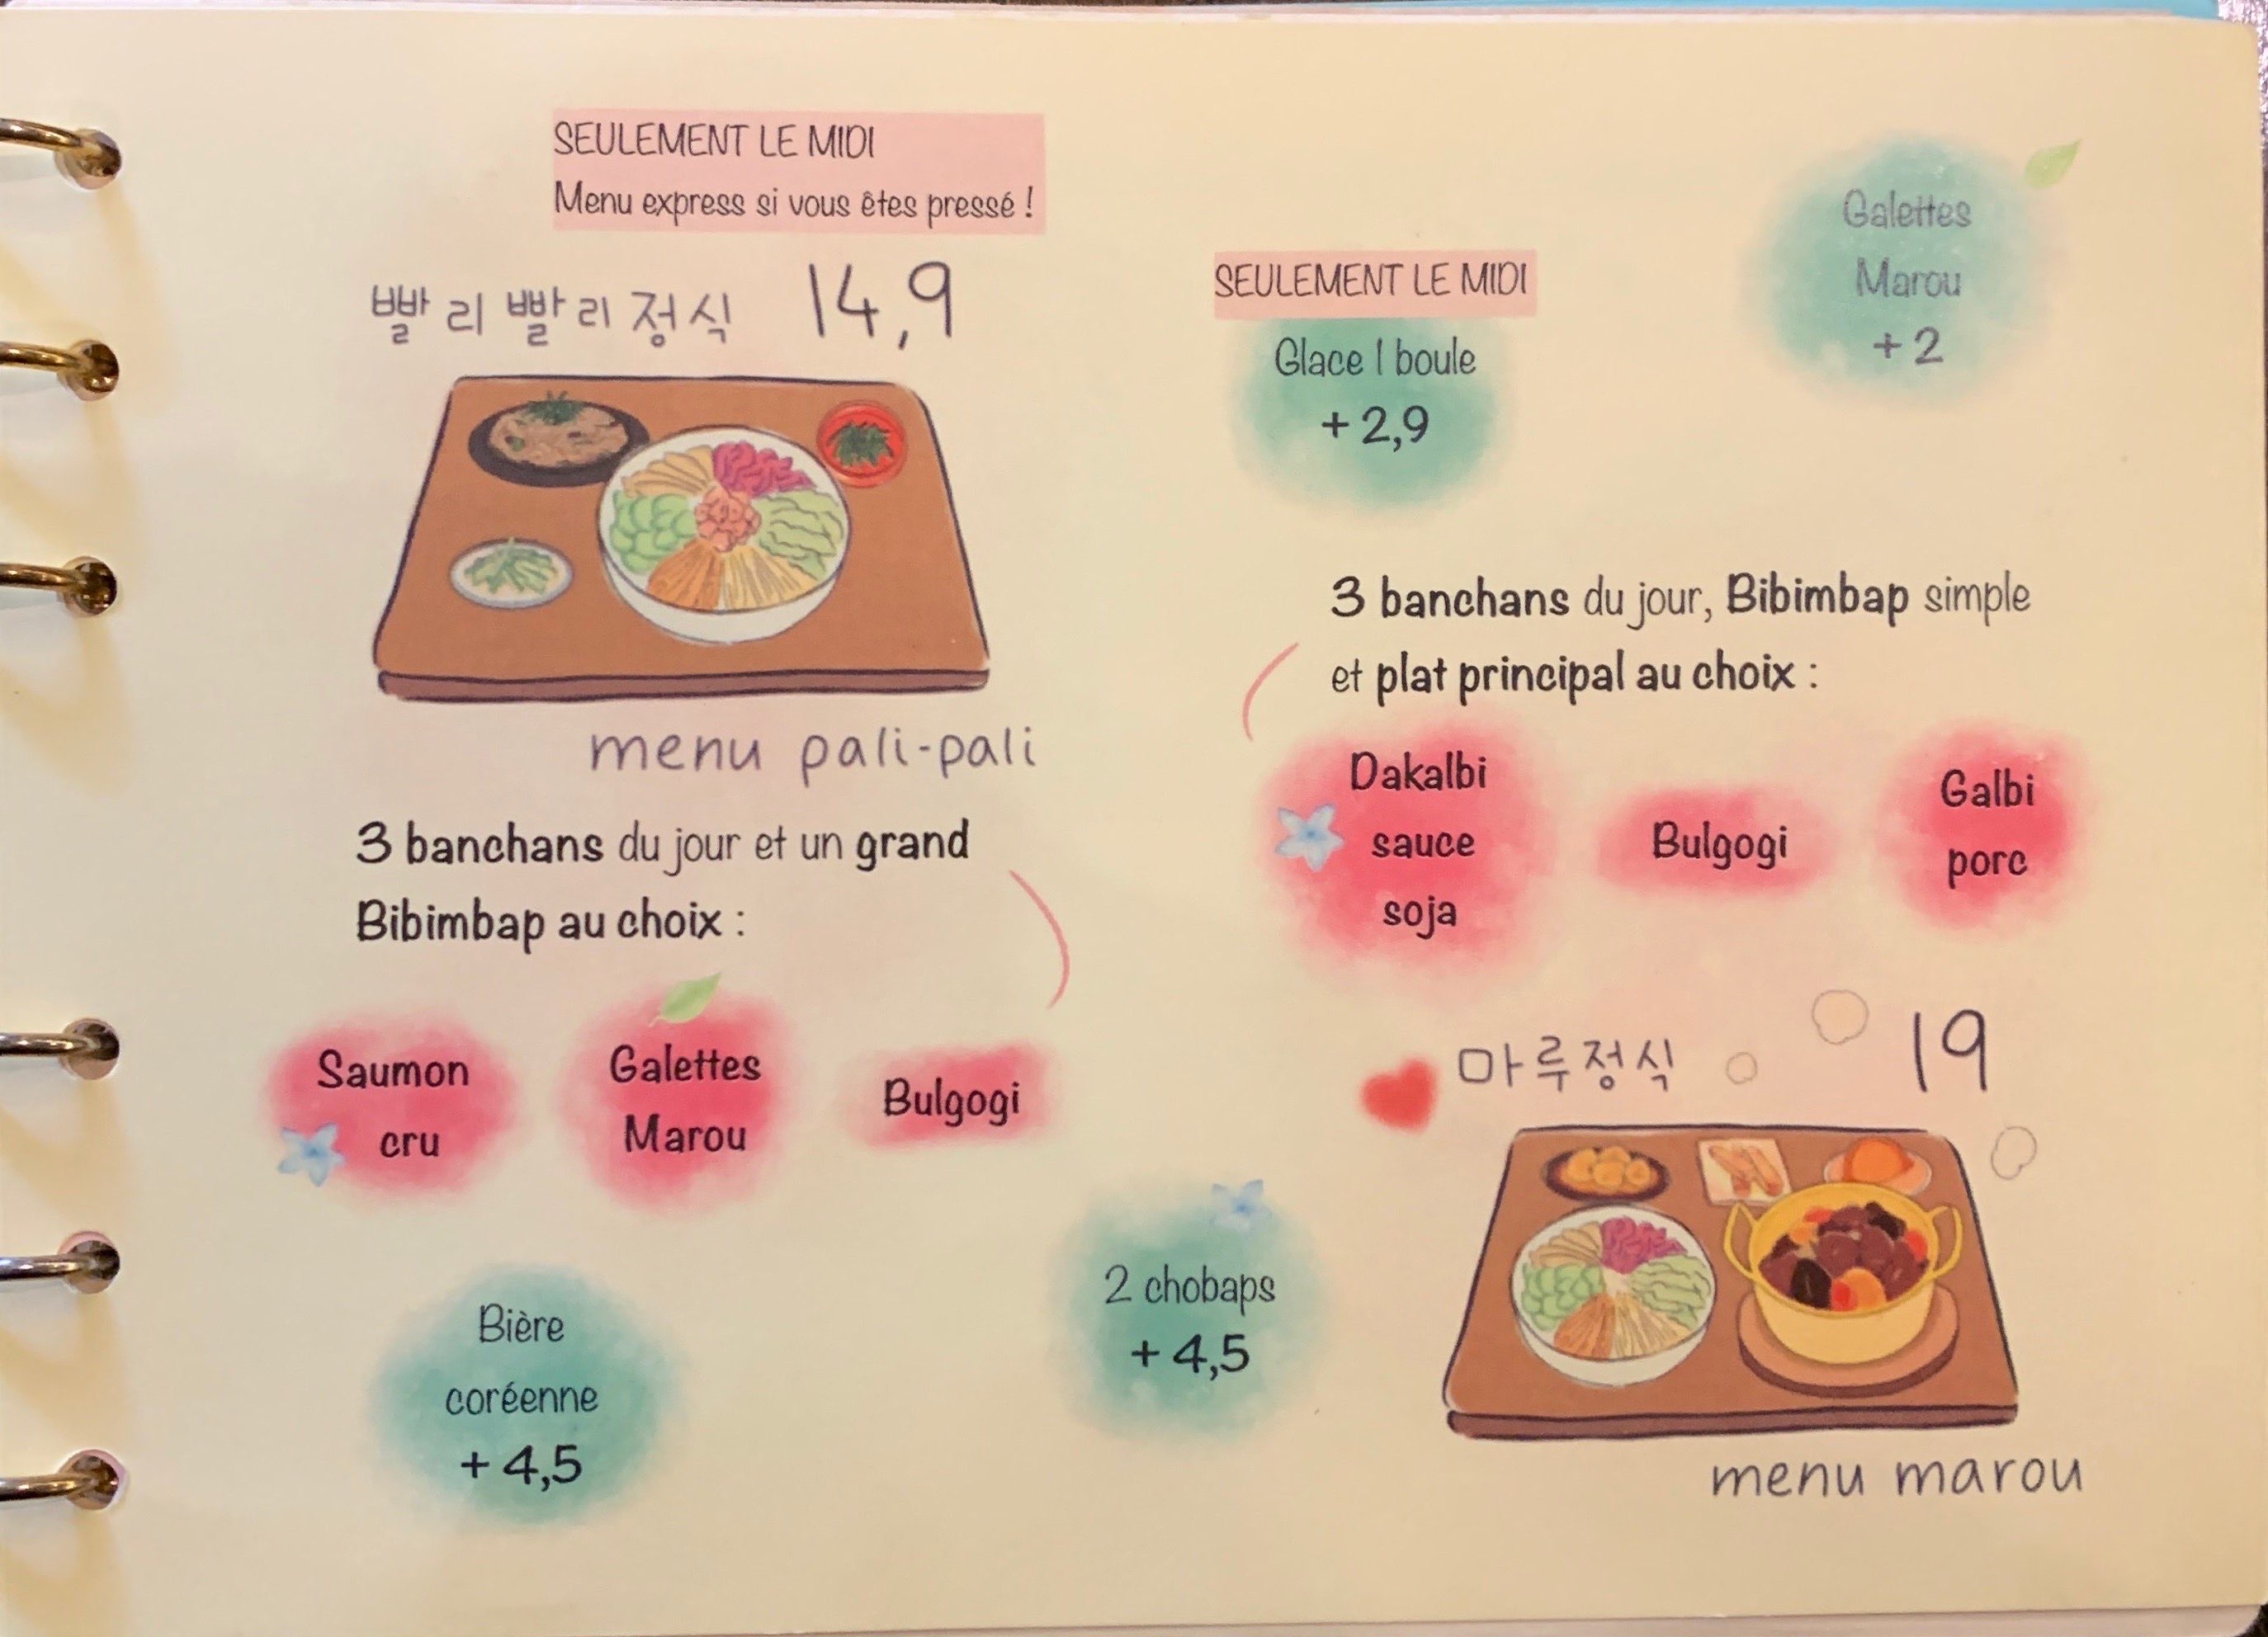 SEULEMENT LE MIDI
Menu express si vous êtes pressé !
빨리빨리정식 14,9
menu pali-pali
3 banchans du jour et un grand
Bibimbap au choix :
Saumon
cru
Galettes
Marou
Bulgogi
Bière
coréenne
+ 4,5
SEULEMENT LE MIDI
Glace 1 boule
+ 2,9
Galettes
Marou
+ 2
3 banchans du jour, Bibimbap simple
et plat principal au choix :
Dakalbi
sauce
soja
Bulgogi
Galbi
porc
마루정식 19
2 chobaps
+ 4,5
menu marou